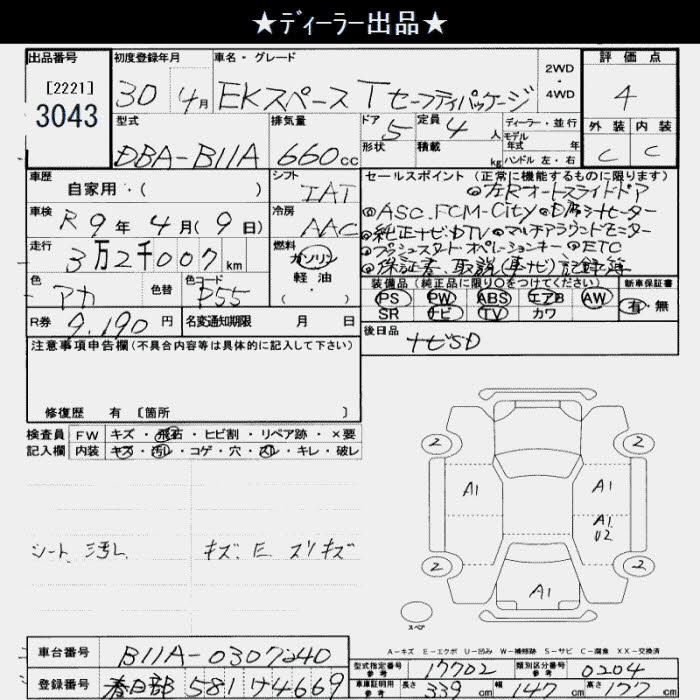 ★ディーラー出品★
出品番号 初度登録年月 車名・グレード 2WD・4WD 評価点
[2221] 3043 30 4月 EKスペース T セーフティパッケージ 4
型式 排気量 ドア 5 定員 4 人 ディーラー・並行 外装 内装
DBA-B11A 660cc 形状 積載 kg モデル年式 年 ハンドル 左・右 C C
車歴 自家用・( ) シフト IAT セールスポイント(正常に機能するものに限ります)
◎左Rオートスライドドア
車検 R9年4月(9日) 冷房 AAC ◎ASC.FCM-City ◎D席シートヒーター
◎純正ナビDTV ◎マルチアラウンドモニター
走行 3万2千007km 燃料 ガソリン 軽油 ( ・ ) ◎プッシュスタートオペレーションキー ◎ETC
◎保証書、取説(車ナビ)記録簿
色 アカ 色替 色コード P55 装備品(純正品に限り○をつけてください) 新車保証書
PS PW ABS エアB AW 有・無
R券 9,190円 名変通知期限 月 日 SR ナビ TV カワ
注意事項申告欄(不具合内容等は具体的に記入して下さい) 後日品 ナビSD
修復歴 有 [箇所 ]
検査員 FW キズ・飛石・ヒビ割・リペア跡・×要
記入欄 内装 キズ・汚レ・コゲ・穴・スレ・キレ・破レ
2 2
A1 A1
シート汚れ キズ、E スリキズ A1
U2
2 2
A1
スペア
A-キズ E-エクボ U-凹み W-補修跡 S-サビ C-腐食 XX-交換済
車台番号 B11A-0307240 型式指定番号 参考 17702 類別区分番号 参考 0204
登録番号 春日部 581 け 4669 車庫証明用 参考 長さ 339cm 幅 147cm 高さ 177cm